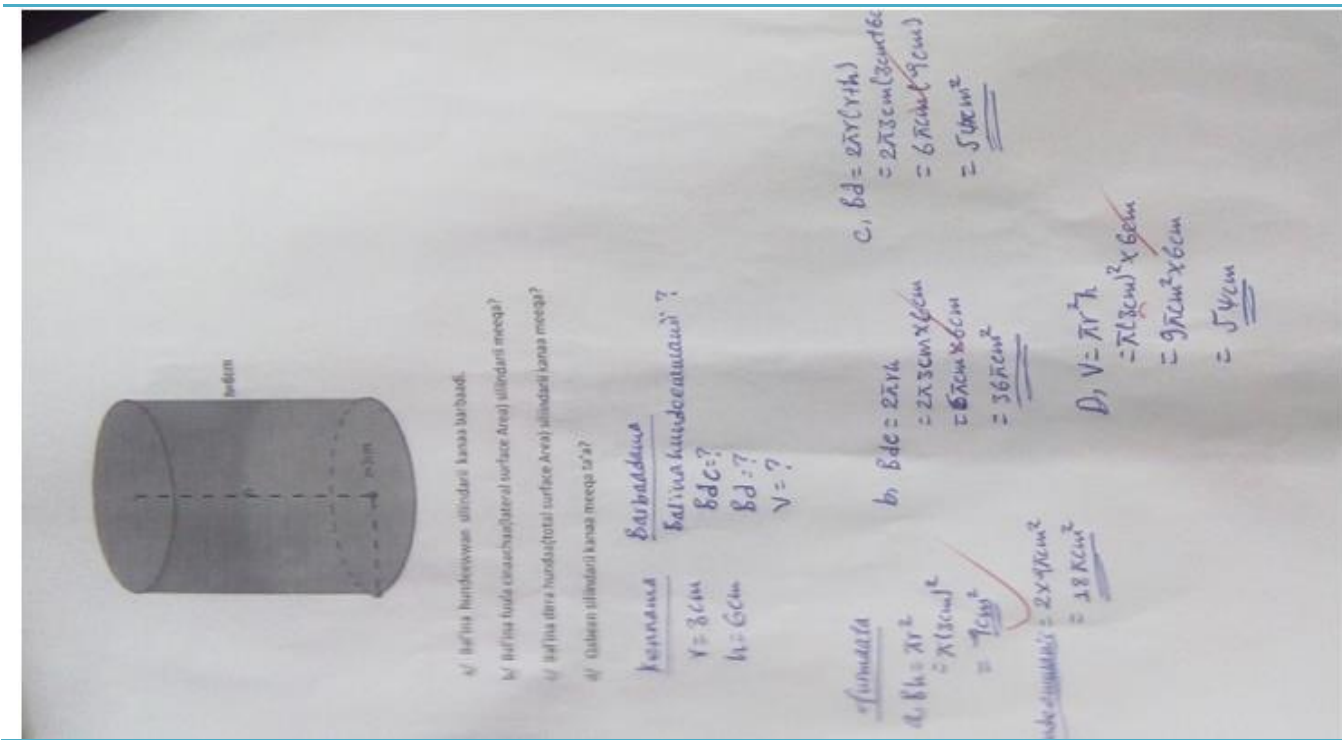 h=6cm
r=3cm
a/ Bal'ina hundeewwan silindarii kanaa barbaadi.
b/ Bal'ina fuula cinaachaa(lateral surface Area) silindarii meeqa?
c/ Bal'ina dirra hundaa(total surface Area) silindarii kanaa meeqa?
d/ Qabeen silindarii kanaa meeqa ta'a?
Kennama
r = 3cm
h = 6cm
Barbaadama
Bdc = ?
Bd = ?
V = ?
furmaata
a, Bh = πr²
= π(3cm)²
= 9cm²
= 2x9πcm²
= 18πcm²
b, Bdc = 2πrh
= 2π3cmx6cm
= 6πcmx6cm
= 36πcm²
C, Bd = 2πr(r+h)
= 2π3cm(3cm+6c
= 6πcm(9cm)
= 54πcm²
D, V = πr²h
= π(3cm)²x6cm
= 9πcm²x6cm
= 54cm